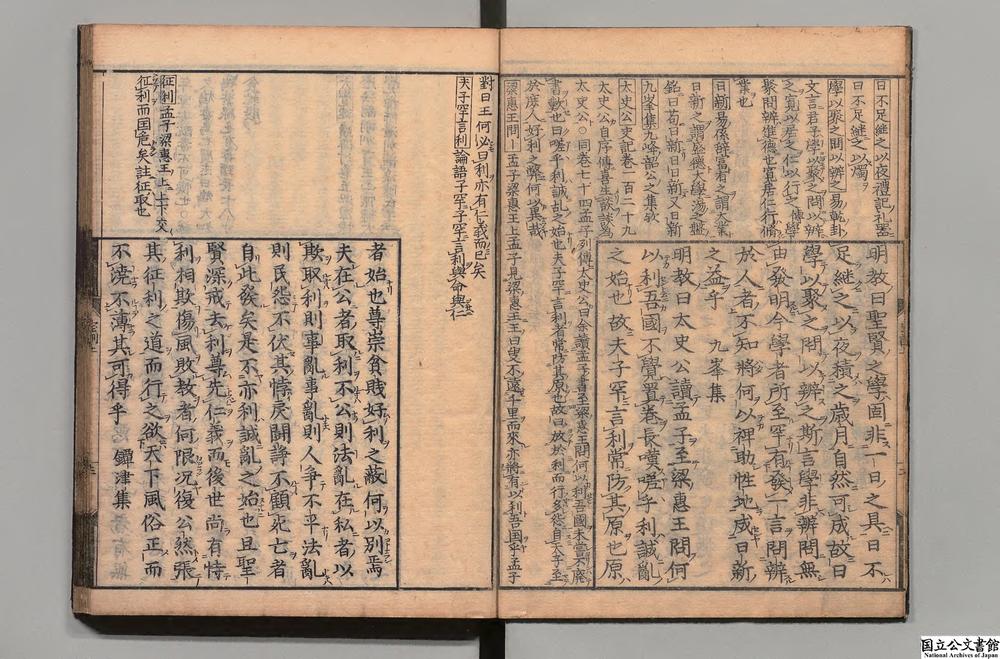 日不足継之以夜禮記礼噐
日不足継之以燭
學以聚之問以辨之易乾卦
文言君子學以聚之問以辨
之寛以居之仁以行之傳學
聚問辨進德也寛居仁行修
業也
日新易係辞冨有之謂大業
日新之謂盛德大學湯之盤
銘曰苟日新日日新又日新
九峯集九峰韶公之集歟
太史公史記卷一百二十九
太史公自序傳喜生談談為
太史公○同卷七十四孟子列傳太史公曰余讀孟子書至梁惠王問何以利吾國未嘗不廃
書歎也曰嗟乎利誠乱之始也夫子罕言利者常防其原也故曰放於利而行多怨自天子至
於庶人好利之弊何以異哉
梁惠王問—孟子梁惠王上孟子見梁惠王王曰叟不遠千里而來亦將有以利吾国乎孟子
明教曰聖賢之學固非一日之具日不
足継之以夜積之歳月自然可成故曰
學以聚之問以辨之斯言學非辨問無
由發明今學者所至罕有發一言問辨
於人者不知將何以裨助性地成日新
之益乎 九峯集
明教曰太史公讀孟子至梁惠王問何
以利吾國不覺置卷長嘆嗟乎利誠亂
之始也故夫子罕言利常防其原也原
對曰王何必曰利亦有仁義而已矣
夫子罕言利論語子罕子罕言利與命與仁
征利孟子梁惠王上上下交
征利而国危矣註征取也
者始也尊崇貧賤好利之蔽何以別焉
夫在公者取利不公則法亂在私者以
欺取利則事亂事亂則人争不平法亂
則民怨不伏其悖戾鬪諍不顧死亡者
自此發矣是不亦利誠亂之始也且聖
賢深戒去利尊先仁義而後世尚有恃
利相欺傷風敗教者何限况復公然張
其征利之道而行之欲天下風俗正而
不澆不薄其可得乎 鐔津集
国立公文書館
National Archives of Japan